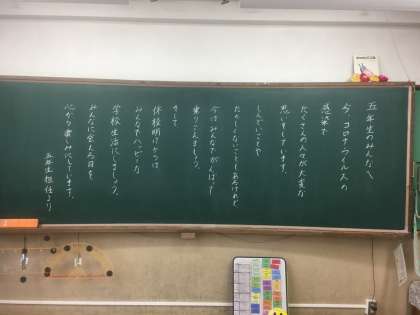 五年生のみんなへ
今、コロナウイルスの
感染で
たくさんの人々が大変な
思いをしています。
しんどいことや
たのしくないこともあるけれど
今はみんなでがんばって
乗りこえましょう。
そして
休校明けからは
みんなでハッピーな
学校生活にしましょう。
みんなに会える日を
心から楽しみにしています。
五年生担任より